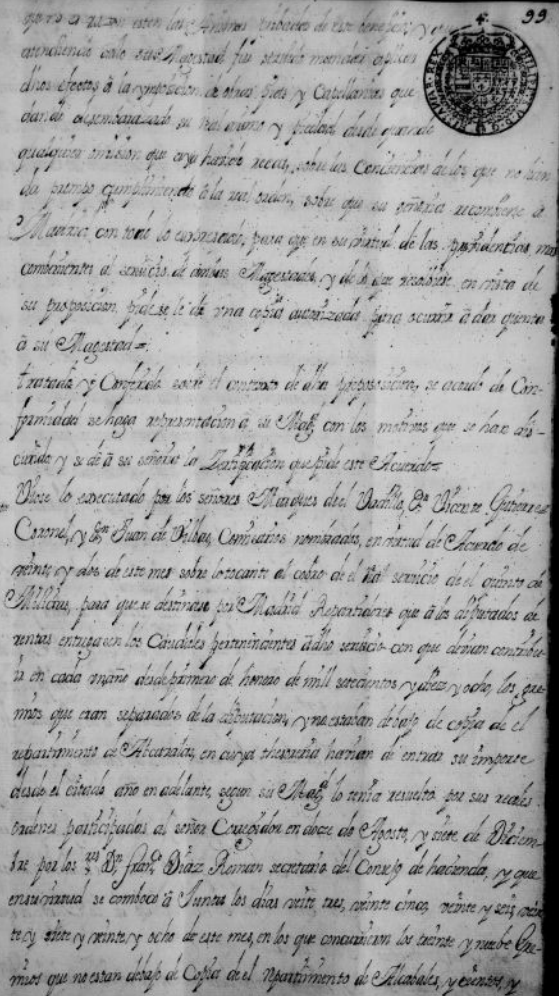 4.
99
esten las Animas de este beneficio, y que
atendiendo a ello su Magestad fue servido mandar aplicar
dhos efectos â la ymposicion de obras pias y Capellanias que
dando desembarazado su Real animo y piedad, desde quando
qualquiera omision que aya havido recae, sobre las Conciencias de los que no han
da prompto cumplimiento â la real orden, sobre que su señoria reconviene â
Madrid con todo lo expresado, para que en su virtud de las providencias mas
combenientes al servicio de ambas Magestades, y de lo que resolviere en vista de
su proposicion, pide se le dê una copia autorizada para ocurrir â dar quenta
â su Magestad=
tratado y Conferido sobre el contexto de dha proposicion, se acordo de Con-
formidad se haga representacion â su Magd. con los motivos que se han dis-
currido y se dê â su señoria la Zertificacion que pide este Acuerdo=
Viose lo executado por los señores Marques de el Vadillo, Dn. Vicente Gutierrez
Coronel, y Dn. Juan de Vilbao, Comisarios nombrados, en virtud de Acuerdo de
veinte y dos de este mes sobre lo tocante al cobro de el Rl. servicio de el quinto de
Milicias, para que se destinase por Madrid Repartidores que â los diputados de
rentas entregasen los Caudales pertenecientes â dho servicio con que devian contribu-
ir en cada un año desde primero de henero de mill setecientos y diez y ocho, los gre-
mios que eran separados de la diputacion, y no estaban debajo de copia de el
repartimiento de Alcavalas, en cuya thesoreria havian de entrar su importe
desde el citado año en adelante, segun su Magd. lo tenia resuelto por sus reales
ordenes participadas al señor Corregidor en doze de Agosto, y siete de Diciem-
bre por los res. Dn. Franco. Diaz Roman secretario del Consejo de hacienda, y que
en su virtud se combocô â Juntas los dias veite tres, veinte cinco, veinte y seis, vein
te y siete y veinte y ocho de este mes, en los que concurrieron los treinte y nuebe Gre-
mios que no estan debajo de Copia de el repartimiento de Alcabalas, y cientos, y